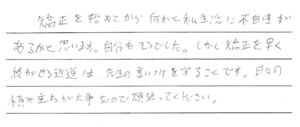 矯正を始めてから何かと私生活に不自由が
あるかと思います。自分もそうでした。しかし矯正を早く
終わらせる近道は、先生の言いつけを守ることです。日々の
積み重ねが大事なので頑張ってください。